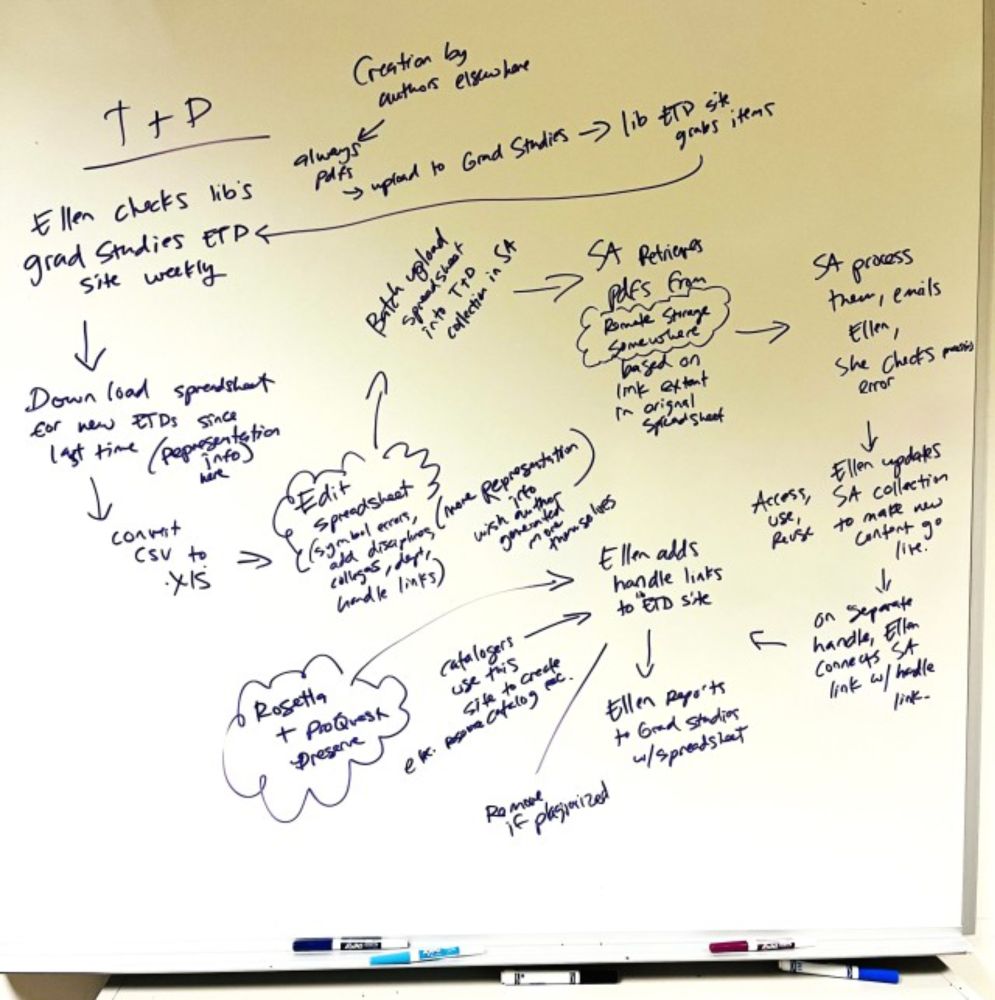 T + D
Creation by
authors elsewhere
always
pdfs
upload to Grad Studies
lib ETD site
grabs items
Ellen checks lib's
grad Studies ETD
site weekly
Download spreadsheet
for new ETDs since
last time (representation
info)
here
convert
CSV to
.XIS
Edit
spreadsheet
(symbol errors,
add disciplines,
colleges, dept,
handle links)
(more Representation
info
wish author
generated
more
themselves
Batch upload
spreadsheet
into T+D
collection in SA
SA Retrieves
pdfs from
Remote Storage
somewhere
based on
link extant
in original
spreadsheet
SA process
them, emails
Ellen,
She checks
error
Ellen updates
SA collection
to make new
content go
live.
Access,
use,
Reuse
on separate
handle, Ellen
connects SA
link w/ handle
link.
Ellen adds
handle links
to ETD site
Ellen Reports
to Grad Studies
w/spreadsheet
catalogers
use this
site to create
catalog rec.
Rosetta
+ ProQuest
Preserve
Remove
if plagiarized
EXPO